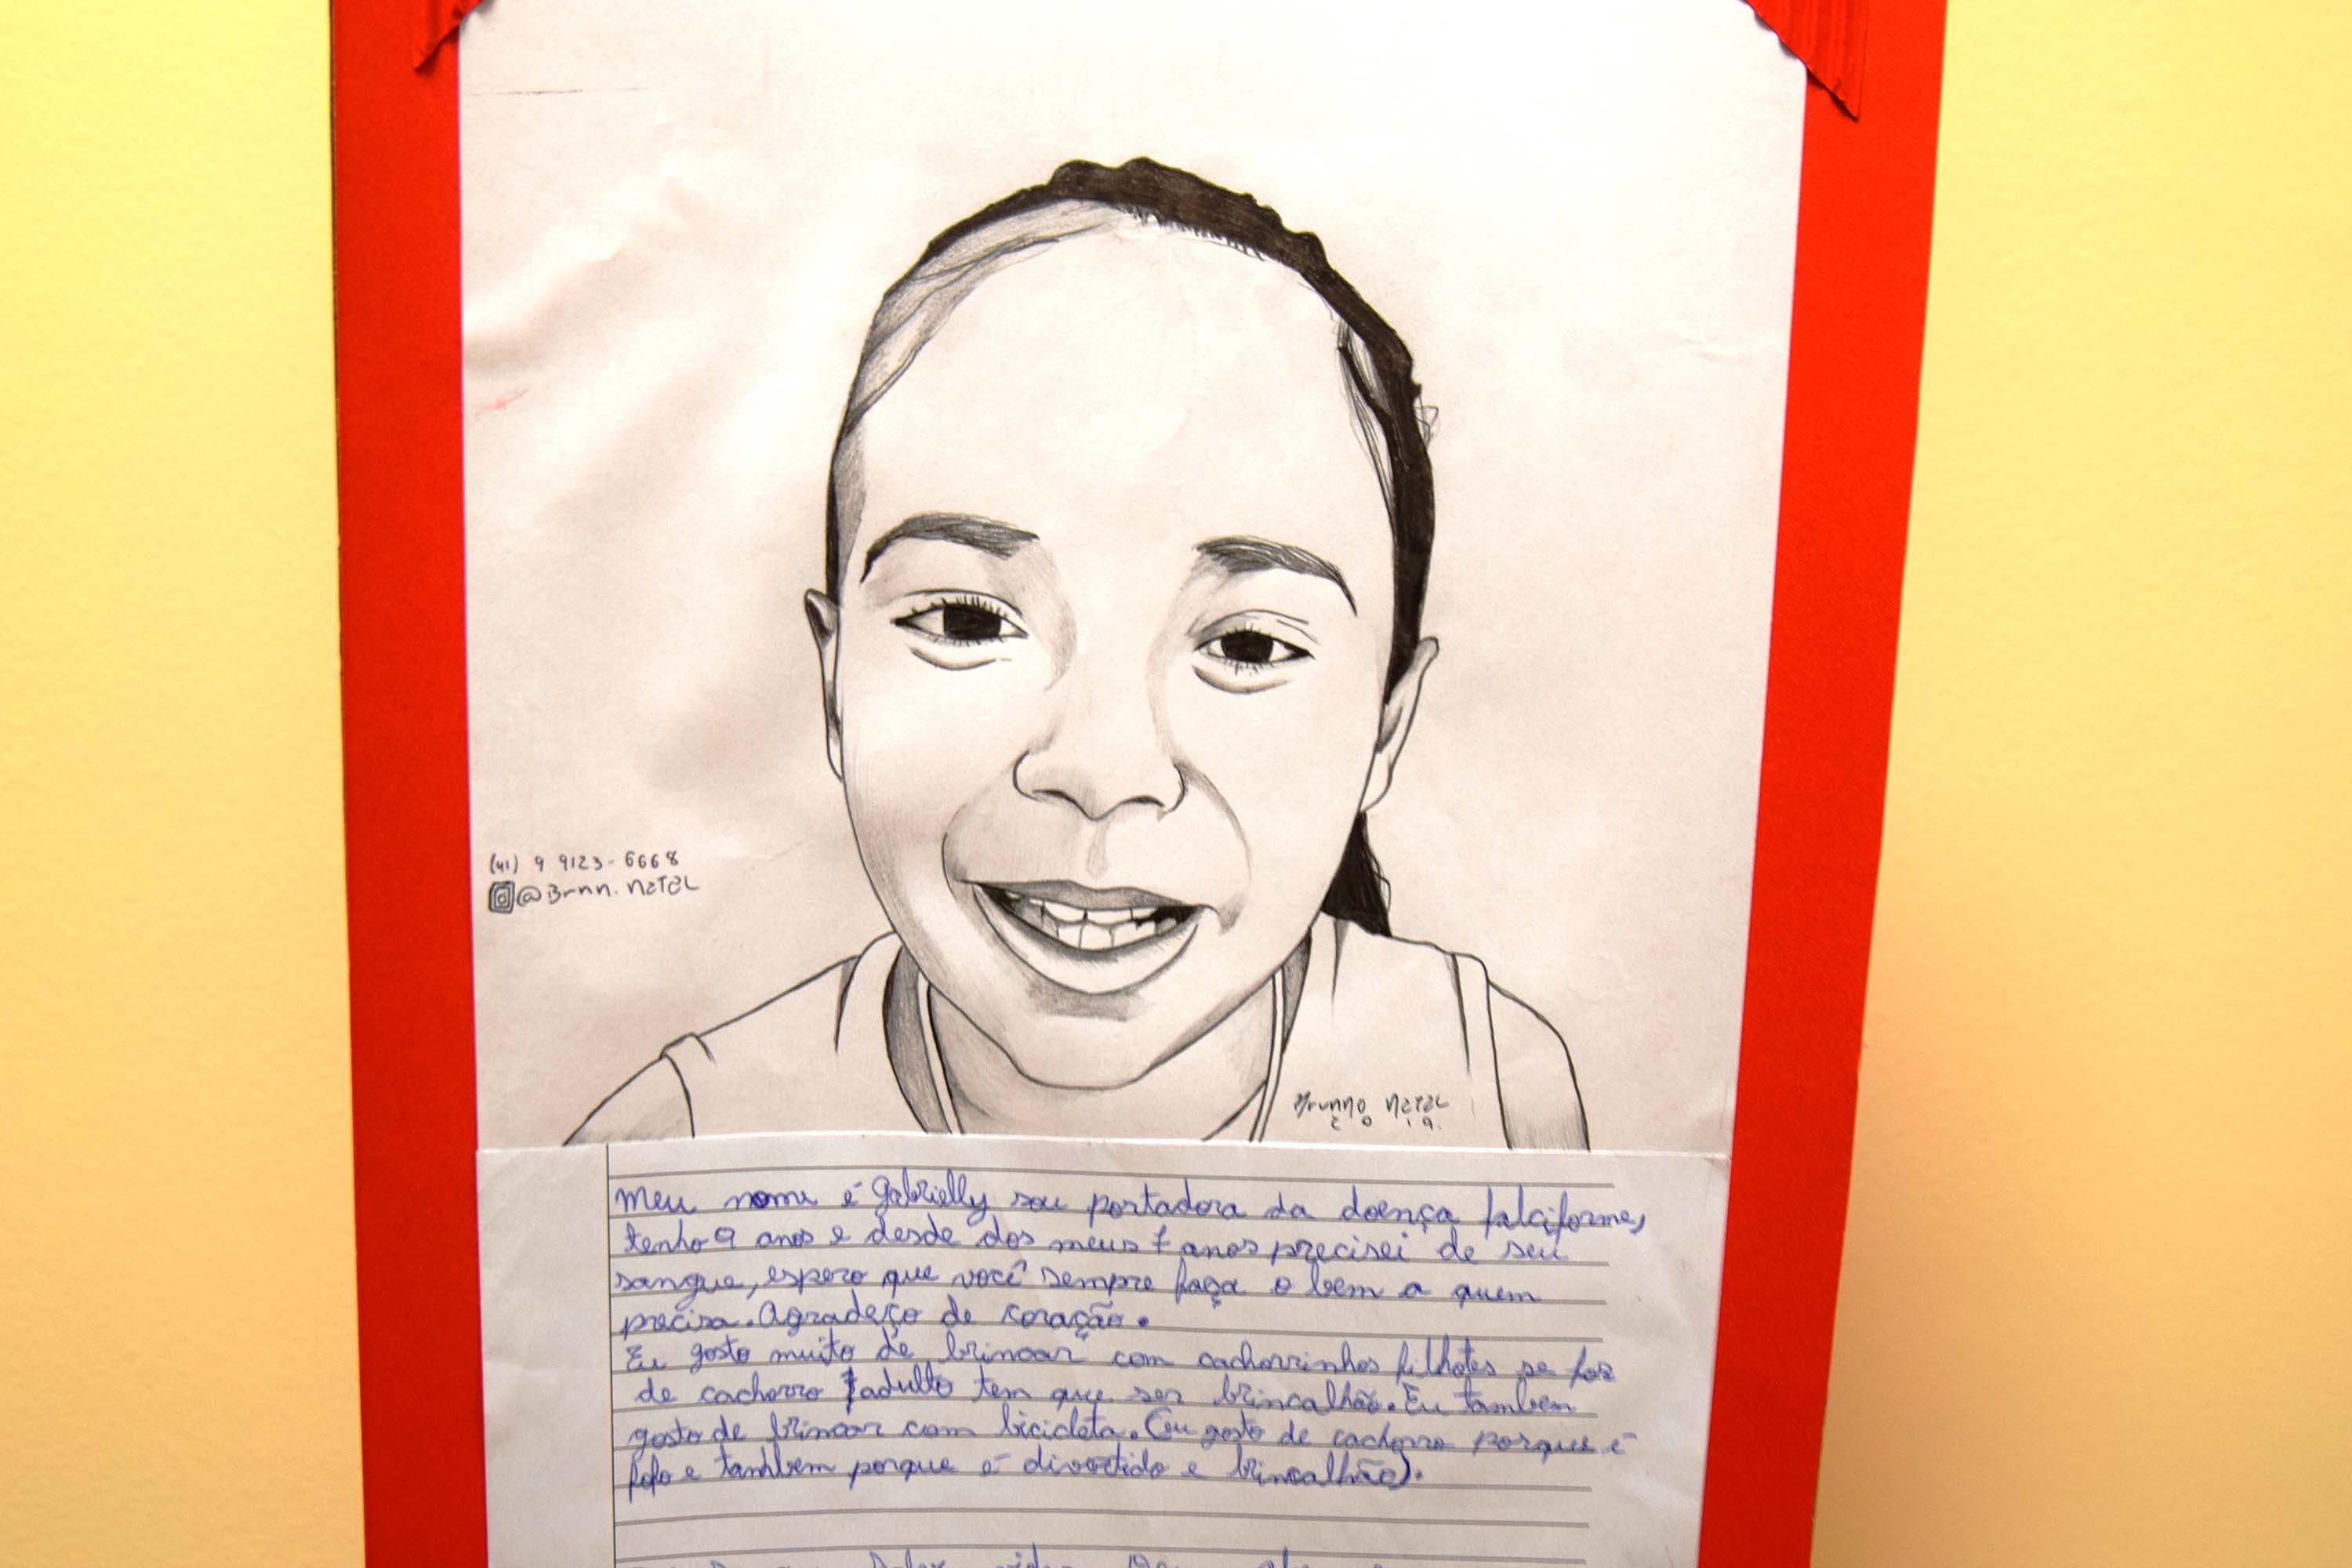 (41) 9 9123-6668
@Brnn.natal
Brunno natal
2019.
Meu nome é Gabrielly sou portadora da doença falciforme,
tenho 9 anos e desde dos meus 7 anos precisei de seu
sangue, espero que você sempre faça o bem a quem
precisa. Agradeço de coração.
Eu gosto muito de brincar com cachorrinhos filhotes se for
de cachorro adulto tem que ser brincalhão. Eu tambem
gosto de brincar com bicicleta. (eu gosto de cachorro porque é
fofo e tambem porque é divertido e brincalhão).